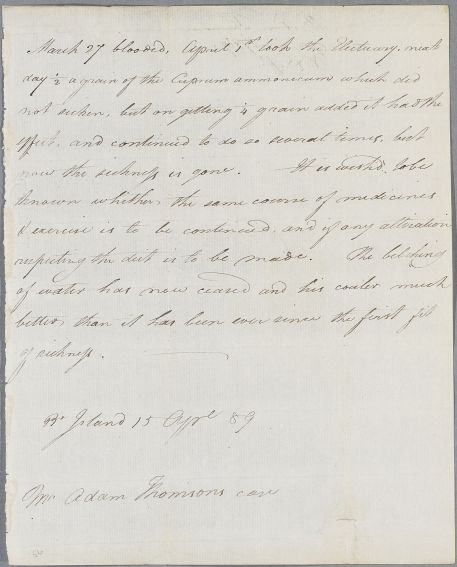 March 27 blooded, April 1st took the Electuary, next
day ½ a grain of the Cuprum ammoniacum which did
not sicken, but on getting ¼ grain added it had the
effect, and continued to do so several times, but
now the sickness is gone. It is wish'd to be
known whether the same course of medicines
& exercise is to be continued, and if any alteration
respecting the diet is to be made. The belching
of water has now ceased and his color much
better than it has been ever since the first fit
of sickness.
Island 15 Aprl 89
Mr Adam Thomsons case